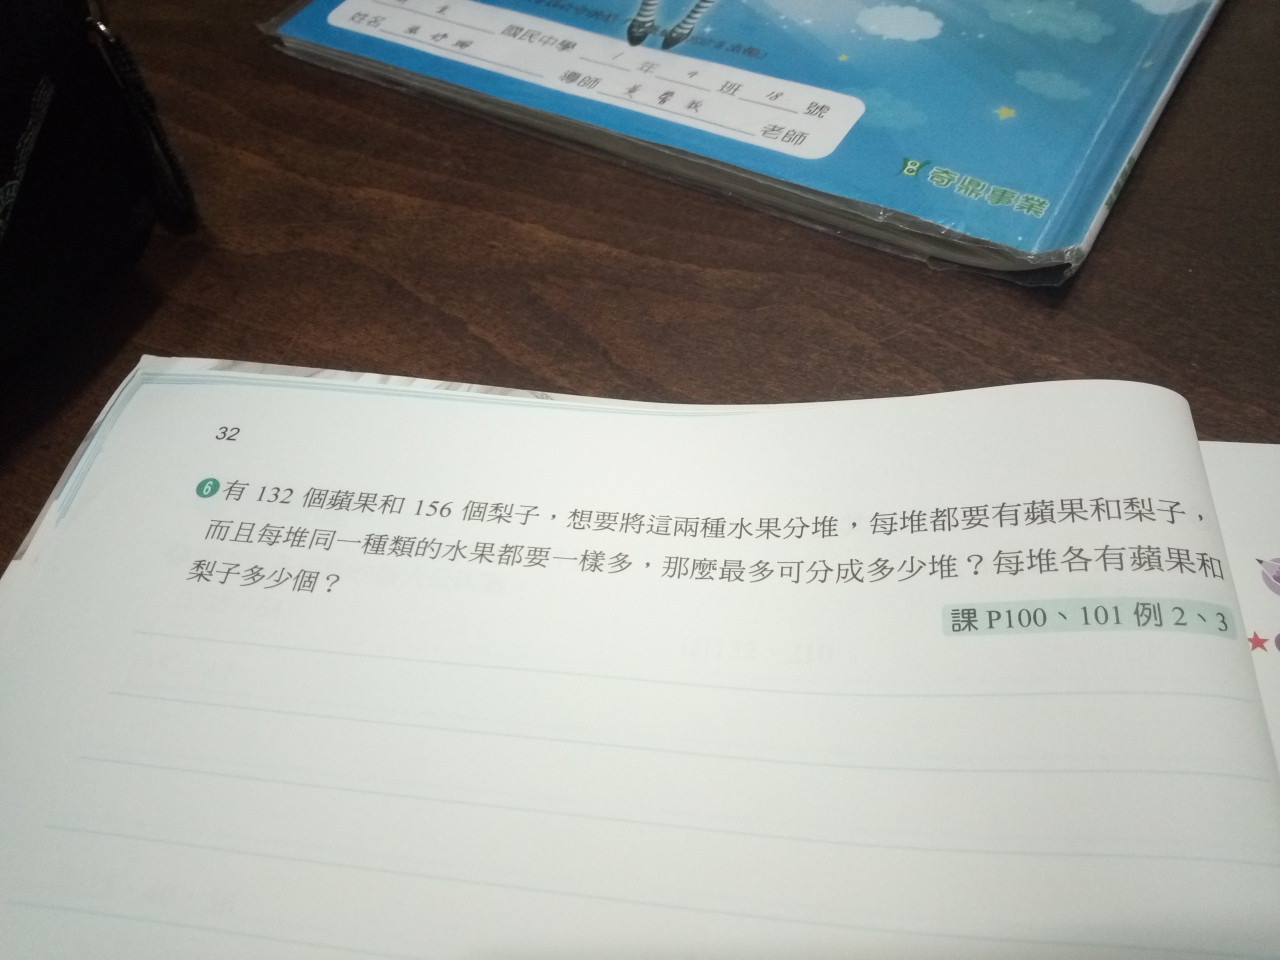 國民中學 1 年 4 班 18 號
姓名 導師 老師
奇鼎事業
32
6 有 132 個蘋果和 156 個梨子，想要將這兩種水果分堆，每堆都要有蘋果和梨子，
而且每堆同一種類的水果都要一樣多，那麼最多可分成多少堆？每堆各有蘋果和
梨子多少個？
課 P100、101 例 2、3